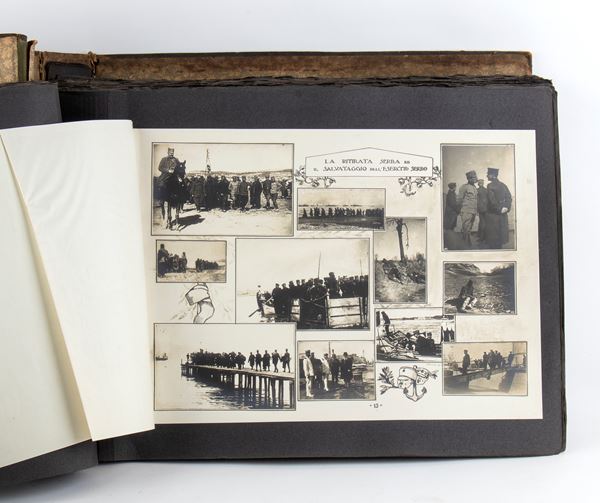 LA RITIRATA SERBA ED
IL SALVATAGGIO DELL'ESERCITO SERBO
- 13 -